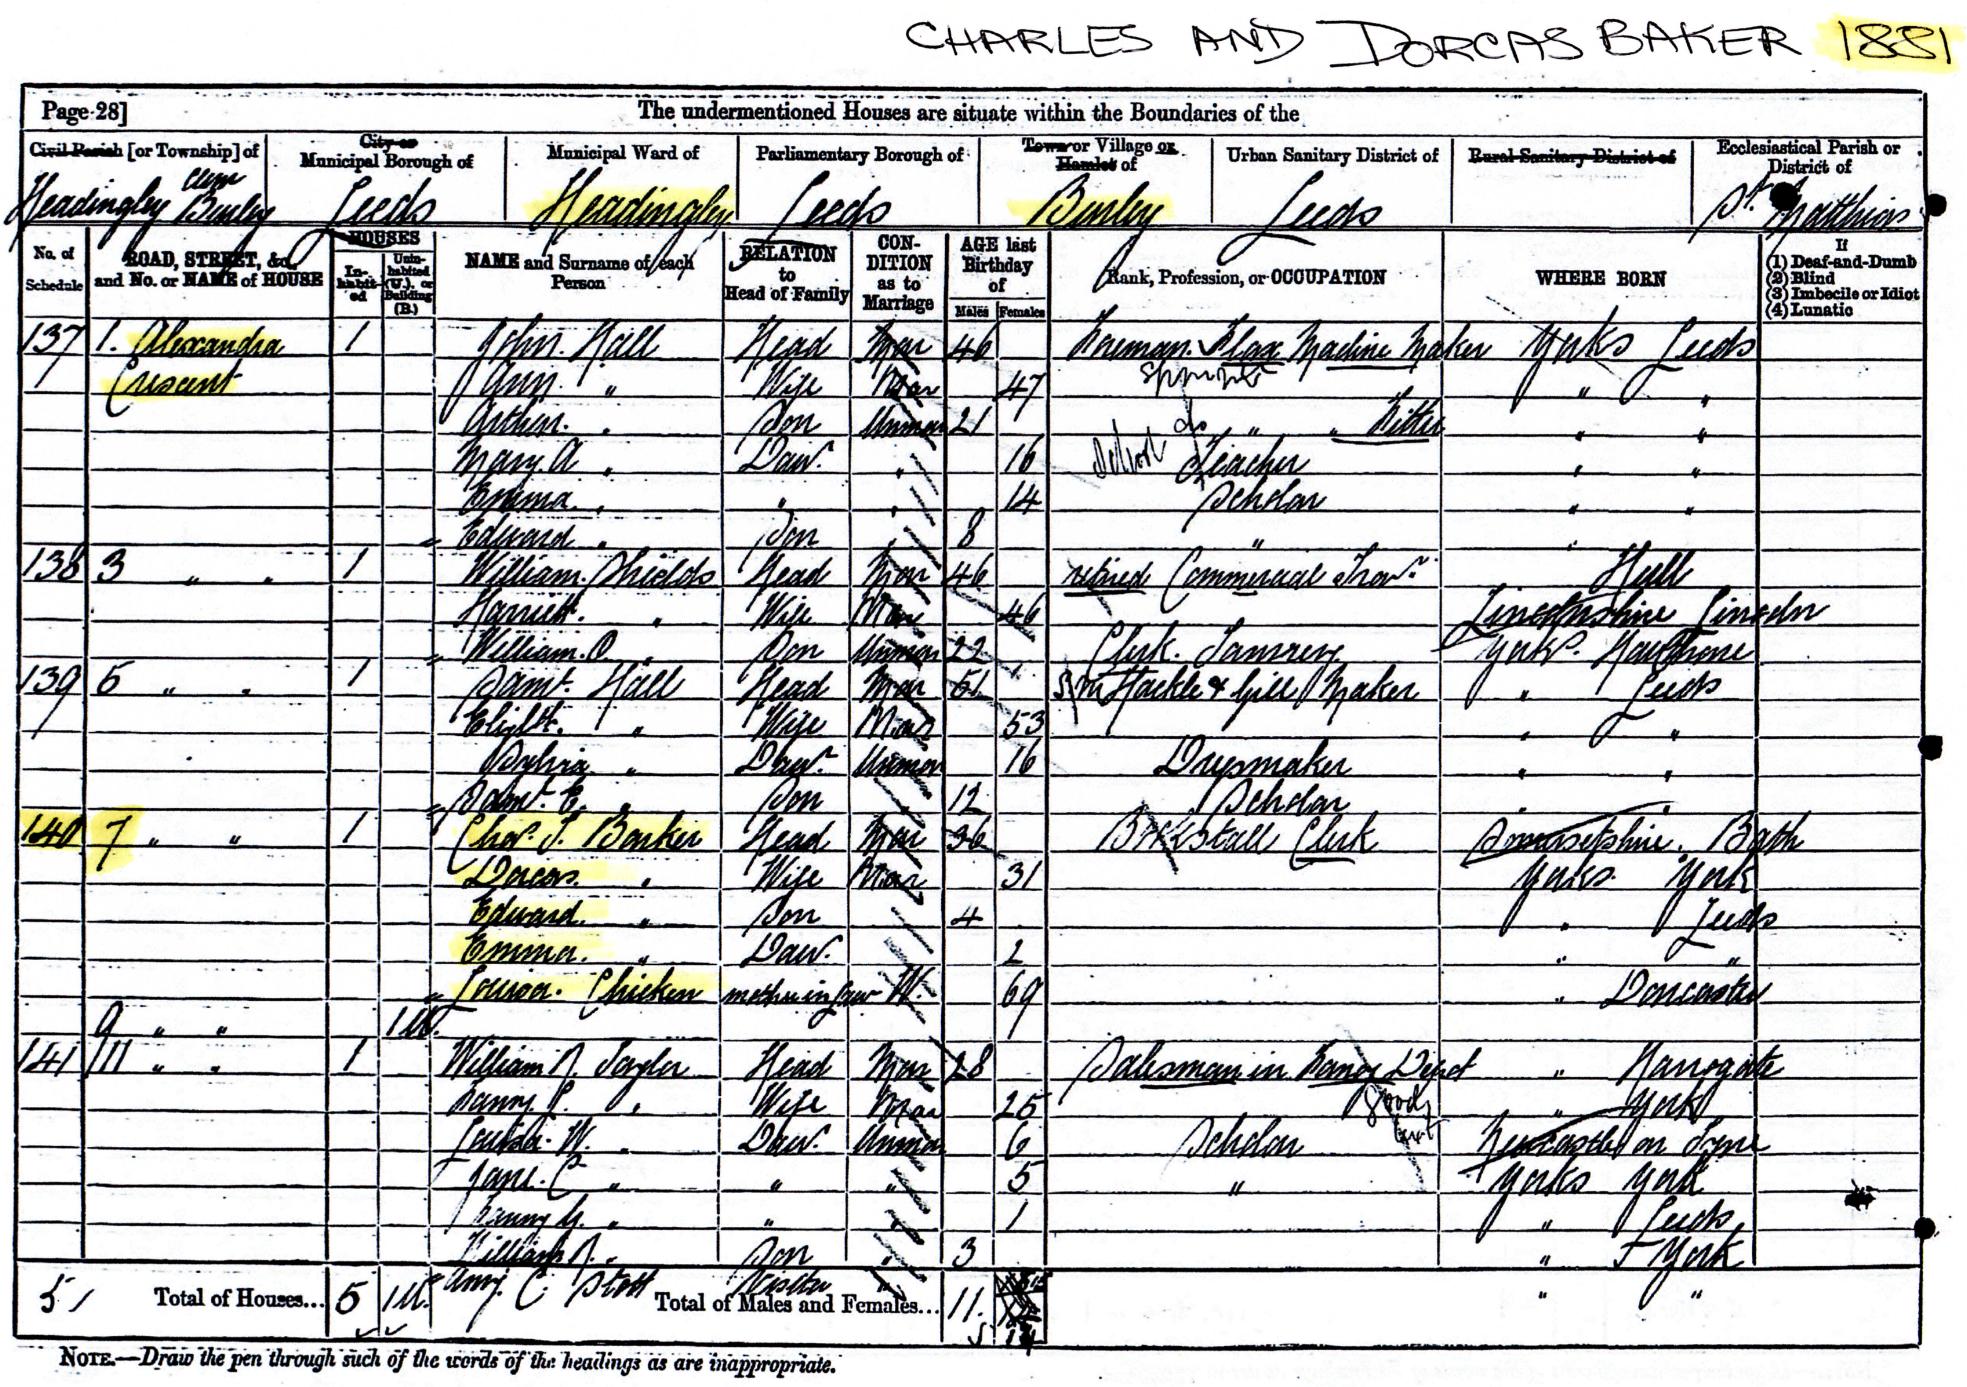 CHARLES AND DORCAS BAKER 1881
Page 28] The undermentioned Houses are situate within the Boundaries of the
Civil Parish [or Township] of City or Municipal Borough of Municipal Ward of Parliamentary Borough of Town or Village or Hamlet of Urban Sanitary District of Rural Sanitary District of Ecclesiastical Parish or District of
Headingley cum Burley Leeds Headingley Leeds Burley Leeds St. Matthias
No. of Schedule ROAD, STREET, &c., and No. or NAME of HOUSE HOUSES Inhabited Uninhabited (U.), or Building (B.) NAME and Surname of each Person RELATION to Head of Family CONDITION as to Marriage AGE last Birthday of Males Females Rank, Profession, or OCCUPATION WHERE BORN If (1) Deaf-and-Dumb (2) Blind (3) Imbecile or Idiot (4) Lunatic
137 1. Alexandra 1 John Hall Head Mar 46 Foreman Flax Machine Maker Yorks Leeds
Crescent Ann " Wife Mar 47 " "
Arthur " Son Unmar 21 do " " Fitter " "
Mary A " Daur. " 16 School Teacher " "
Emma " " " 14 Scholar " "
Edward " Son 8 " "
138 3 " " 1 William Shields Head Mar 46 retired Commercial Travr. Hull
Harriett " Wife Mar 46 Lincolnshire Lincoln
William O. " Son Unmar 22 Clerk Yorks.
139 5 " " 1 Saml. Hall Head Mar 51 Hackle & Gill Maker " Leeds
Elizth. " Wife Mar 53 " "
Sylvia " Daur. Unmar 16 Dressmaker " "
Saml. E. " Son 12 Scholar " "
140 7 " " 1 Chas. J. Barker Head Mar 36 Bookstall Clerk Somersetshire Bath
Dorcas " Wife Mar 31 Yorks. York
Edward " Son 4 " Leeds
Emma " Daur. 2 " "
Louisa Chicken mother in law W. 69 " Doncaster
9 " " 1 U.
141 11 " " 1 William N. Taylor Head Mar 28 Salesman in Fancy Depot " Harrogate
Fanny P. " Wife Mar 25 goods " York
Louisa W. " Daur. Unmar 6 Scholar Newcastle on Tyne
Jane C " " " 5 " Yorks York
Fanny G. " " " 1 " Leeds
William N. " Son " 3 " York
5 / Total of Houses... 5 1 U. Amy C Stott Visitor " Total of Males and Females... 11. " "
NOTE.—Draw the pen through such of the words of the headings as are inappropriate.